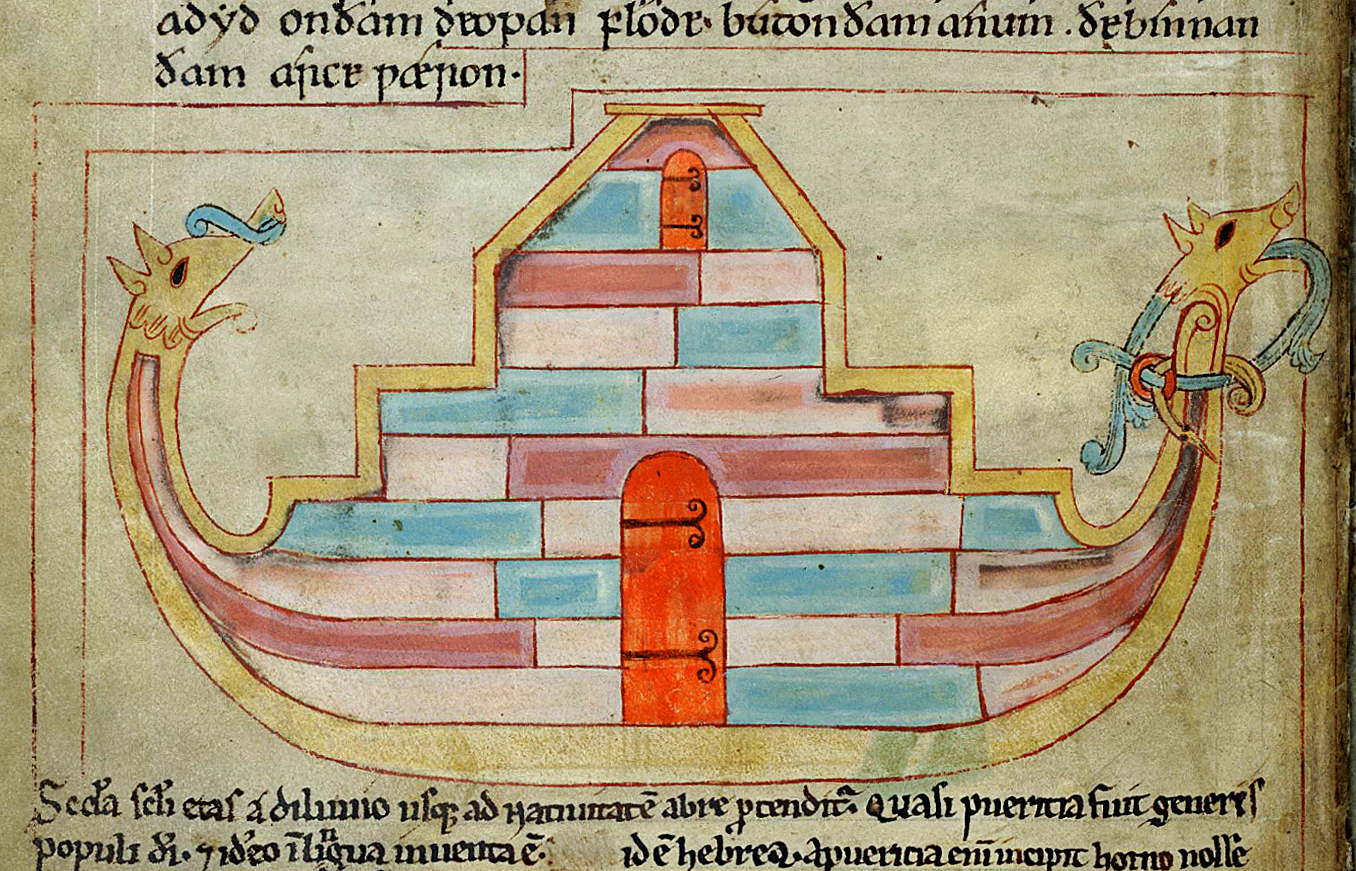 adẏd on ðam deopan flode· buton ðam anum .ðe binnan
ðam arce ƿæron·
Scd̄a scl̄i etas a diluuio usq; ad natiuitatē abrē ꝑtendit᷑. Quasi puericia fuit generis
populi dī· ⁊ ideo ī lingua inuenta ē· id ē hebrea· apuericia enī incipit homo nosse